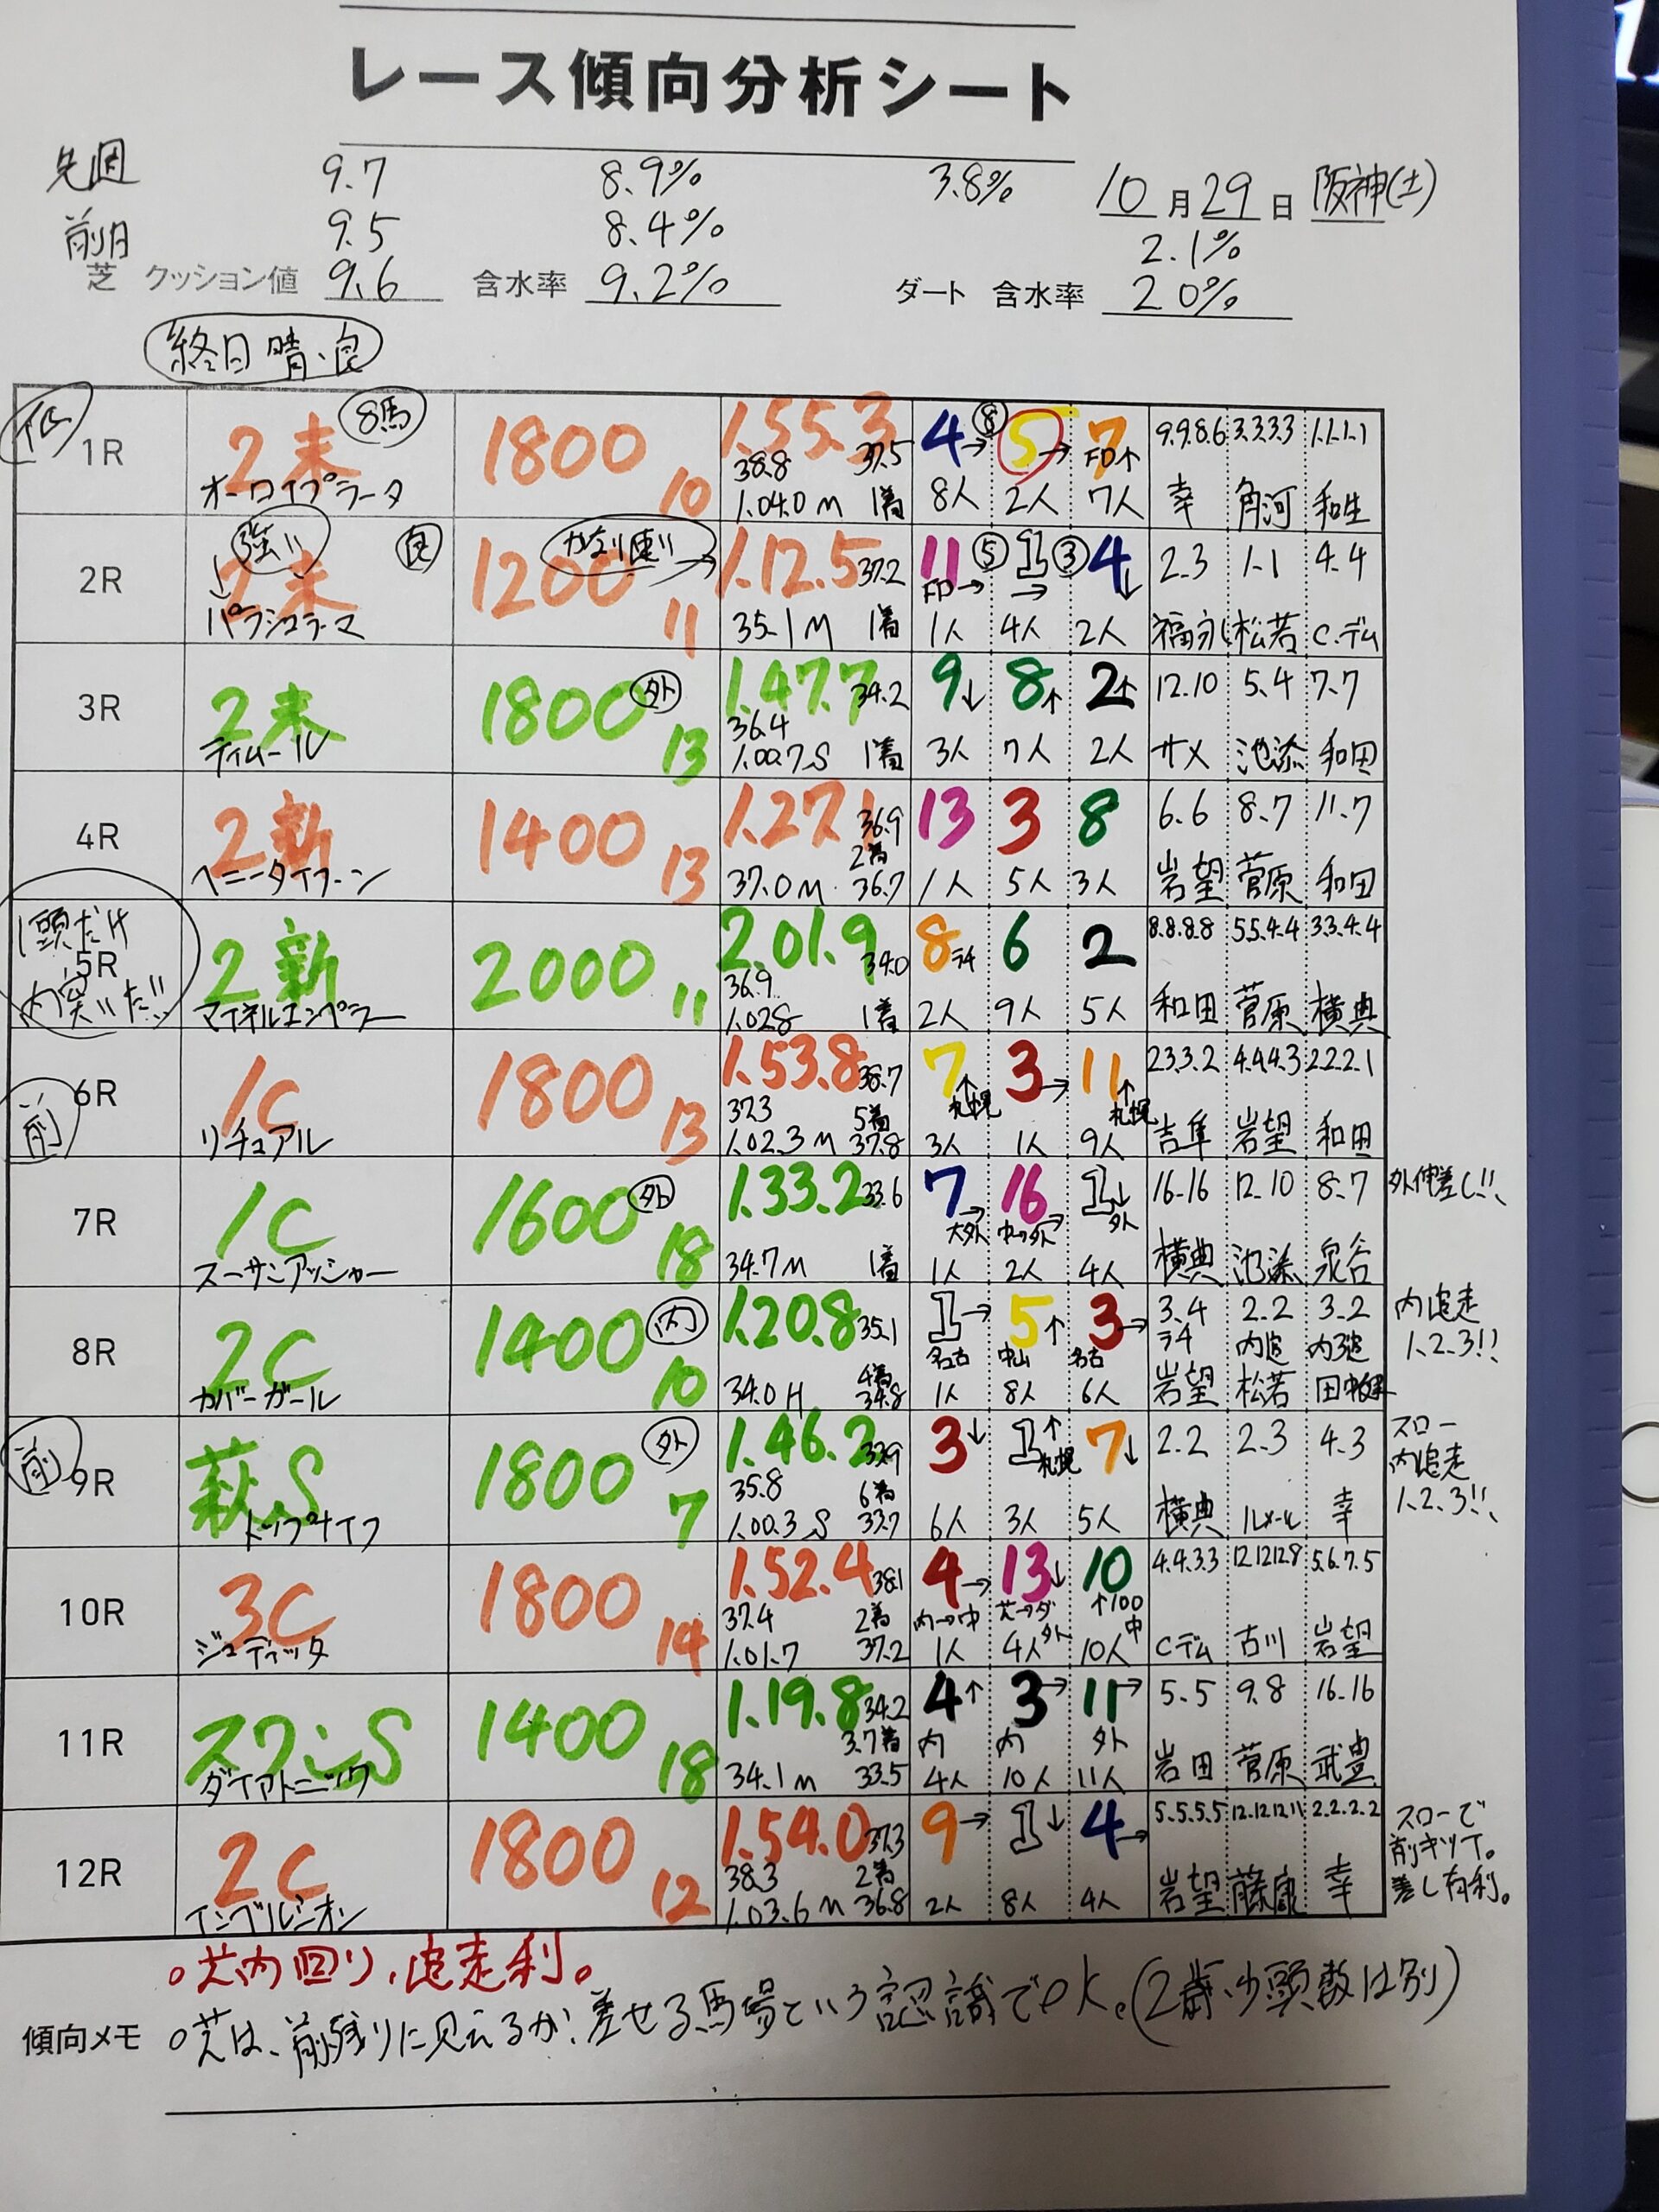 レース傾向分析シート
先週 9.7 8.9% 3.8% 10月29日 阪神(土)
前日 9.5 8.4% 2.1%
芝 クッション値 9.6 含水率 9.2% ダート 含水率 2.0%
終日 晴・良
1R 2未 8馬 1800 1.55.3 4→ ⑧ 5→ 7 9.9.8.6 3.3.3.3 1.1.1.1
38.8 37.5 FD↑
オーロイプラータ 10 1.04.0 M 1着 8人 2人 7人 幸 角河 和生
強い 良 かなり速い→
2R 2未 1200 1.12.5 37.2 11 ⑤ 1 ③ 4↓ 2.3 1.1 4.4
FD→ →
パラシュラーマ 11 35.1 M 1着 1人 4人 2人 福永 松若 C.デム
3R 2未 1800 外 1.47.7 34.2 9↓ 8↑ 2↑ 12.10 5.4 7.7
36.4
ティムール 13 1.00.7 S 1着 3人 7人 2人 サメ 池添 和田
4R 2新 1400 1.27.1 36.9 13 3 8 6.6 8.7 11.7
2着
ヘニータイフーン 13 37.0 M 36.7 1人 5人 3人 岩望 菅原 和田
1頭だけ
5R 2新 2000 2.01.9 34.0 8 ラチ 6 2 8.8.8.8 5.5.4.4 3.3.4.4
内突いた!!
36.9
マイネルエンペラー 11 1.02.8 1着 2人 9人 5人 和田 菅原 横典
6R 1C 1800 1.53.8 38.7 7↑ 3→ 11↑ 2.3.3.2 4.4.4.3 2.2.2.1
前 37.3 5着 札幌 札幌
リチュアル 13 1.02.3 M 37.8 3人 1人 9人 吉隼 岩望 和田
7R 1C 1600 外 1.33.2 33.6 7→ 16→ 1↓ 16.16 12.10 8.7 外伸差し!!
大外 中→外 外
スーサンアッシャー 18 34.7 M 1着 1人 2人 4人 横典 池添 泉谷
8R 2C 1400 内 1.20.8 35.1 1→ 5↑ 3→ 3.4 2.2 3.2 内追走
名古 中山 名古 ラチ 内追 内3追 1.2.3!!
4着
カバーガール 10 34.0 H 34.8 1人 8人 6人 岩望 松若 田中健
前
9R 萩S 1800 外 1.46.2 33.9 3↓ 1↑ 7↓ 2.2 2.3 4.3 スロー
35.8 6着 札幌 内追走
トップナイフ 7 1.00.3 S 33.7 6人 3人 5人 横典 ルメール 幸 1.2.3!!
10R 3C 1800 1.52.4 38.1 4→ 13↓ 10 4.4.3.3 12.12.12.8 5.6.7.5
37.4 2着 内→中 芝→ダ 外 ↑100 中
ジュディッタ 14 1.01.7 37.2 1人 4人 10人 Cデム 古川 岩望
11R スワンS 1400 1.19.8 34.2 4↑ 3→ 11→ 5.5 9.8 16.16
3.7着 内 内 外
ダイアトニック 18 34.1 M 33.5 4人 10人 11人 岩田 菅原 武豊
12R 2C 1800 1.54.0 37.3 9→ 1↓ 4→ 5.5.5.5 12.12.12.11 2.2.2.2 スローで
38.3 2着 前キツイ。
インブルニオン 12 1.03.6 M 36.8 2人 8人 4人 岩望 藤康 幸 差し有利。
○芝内回り、追走利。
傾向メモ ○芝は、前残りに見えるが、差せる馬場という認識でOK。(2歳、少頭数は別)